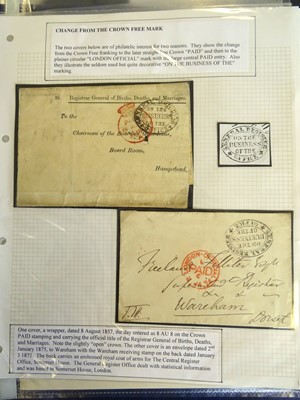 CHANGE FROM THE CROWN FREE MARK
The two covers below are of philatelic interest for two reasons. They show the change
from the Crown Free franking to the later straight line Crown "PAID" and then to the
plainer circular "LONDON OFFICIAL" mark with its large central PAID entry. Also
they illustrate the seldom used but quite decorative "ON THE BUSINESS OF THE"
marking.
Registrar General of Births, Deaths, and Marriages.
To the
Chairman of the Board of
Board Room,
Hampstead.
GENERAL REGISTER
ON THE
BUSINESS
OF THE
OFFICE
ON THE
BUSINESS
OF THE
PAID
Registrar
Wareham
Dorset
One cover, a wrapper, dated 8 August 1857, the day entered as 8 AU 8 on the Crown
PAID stamping and carrying the official title of the Registrar General of Births, Deaths,
and Marriages. Note the slightly "open" crown. The other cover is an envelope dated 2nd
January 1875, to Wareham with the Wareham receiving stamp on the back dated January
3 1875. The back carries an embossed royal coat of arms for The Central Register
Office, Somerset House. The General Register Office dealt with statistical information
and was based in Somerset House, London.